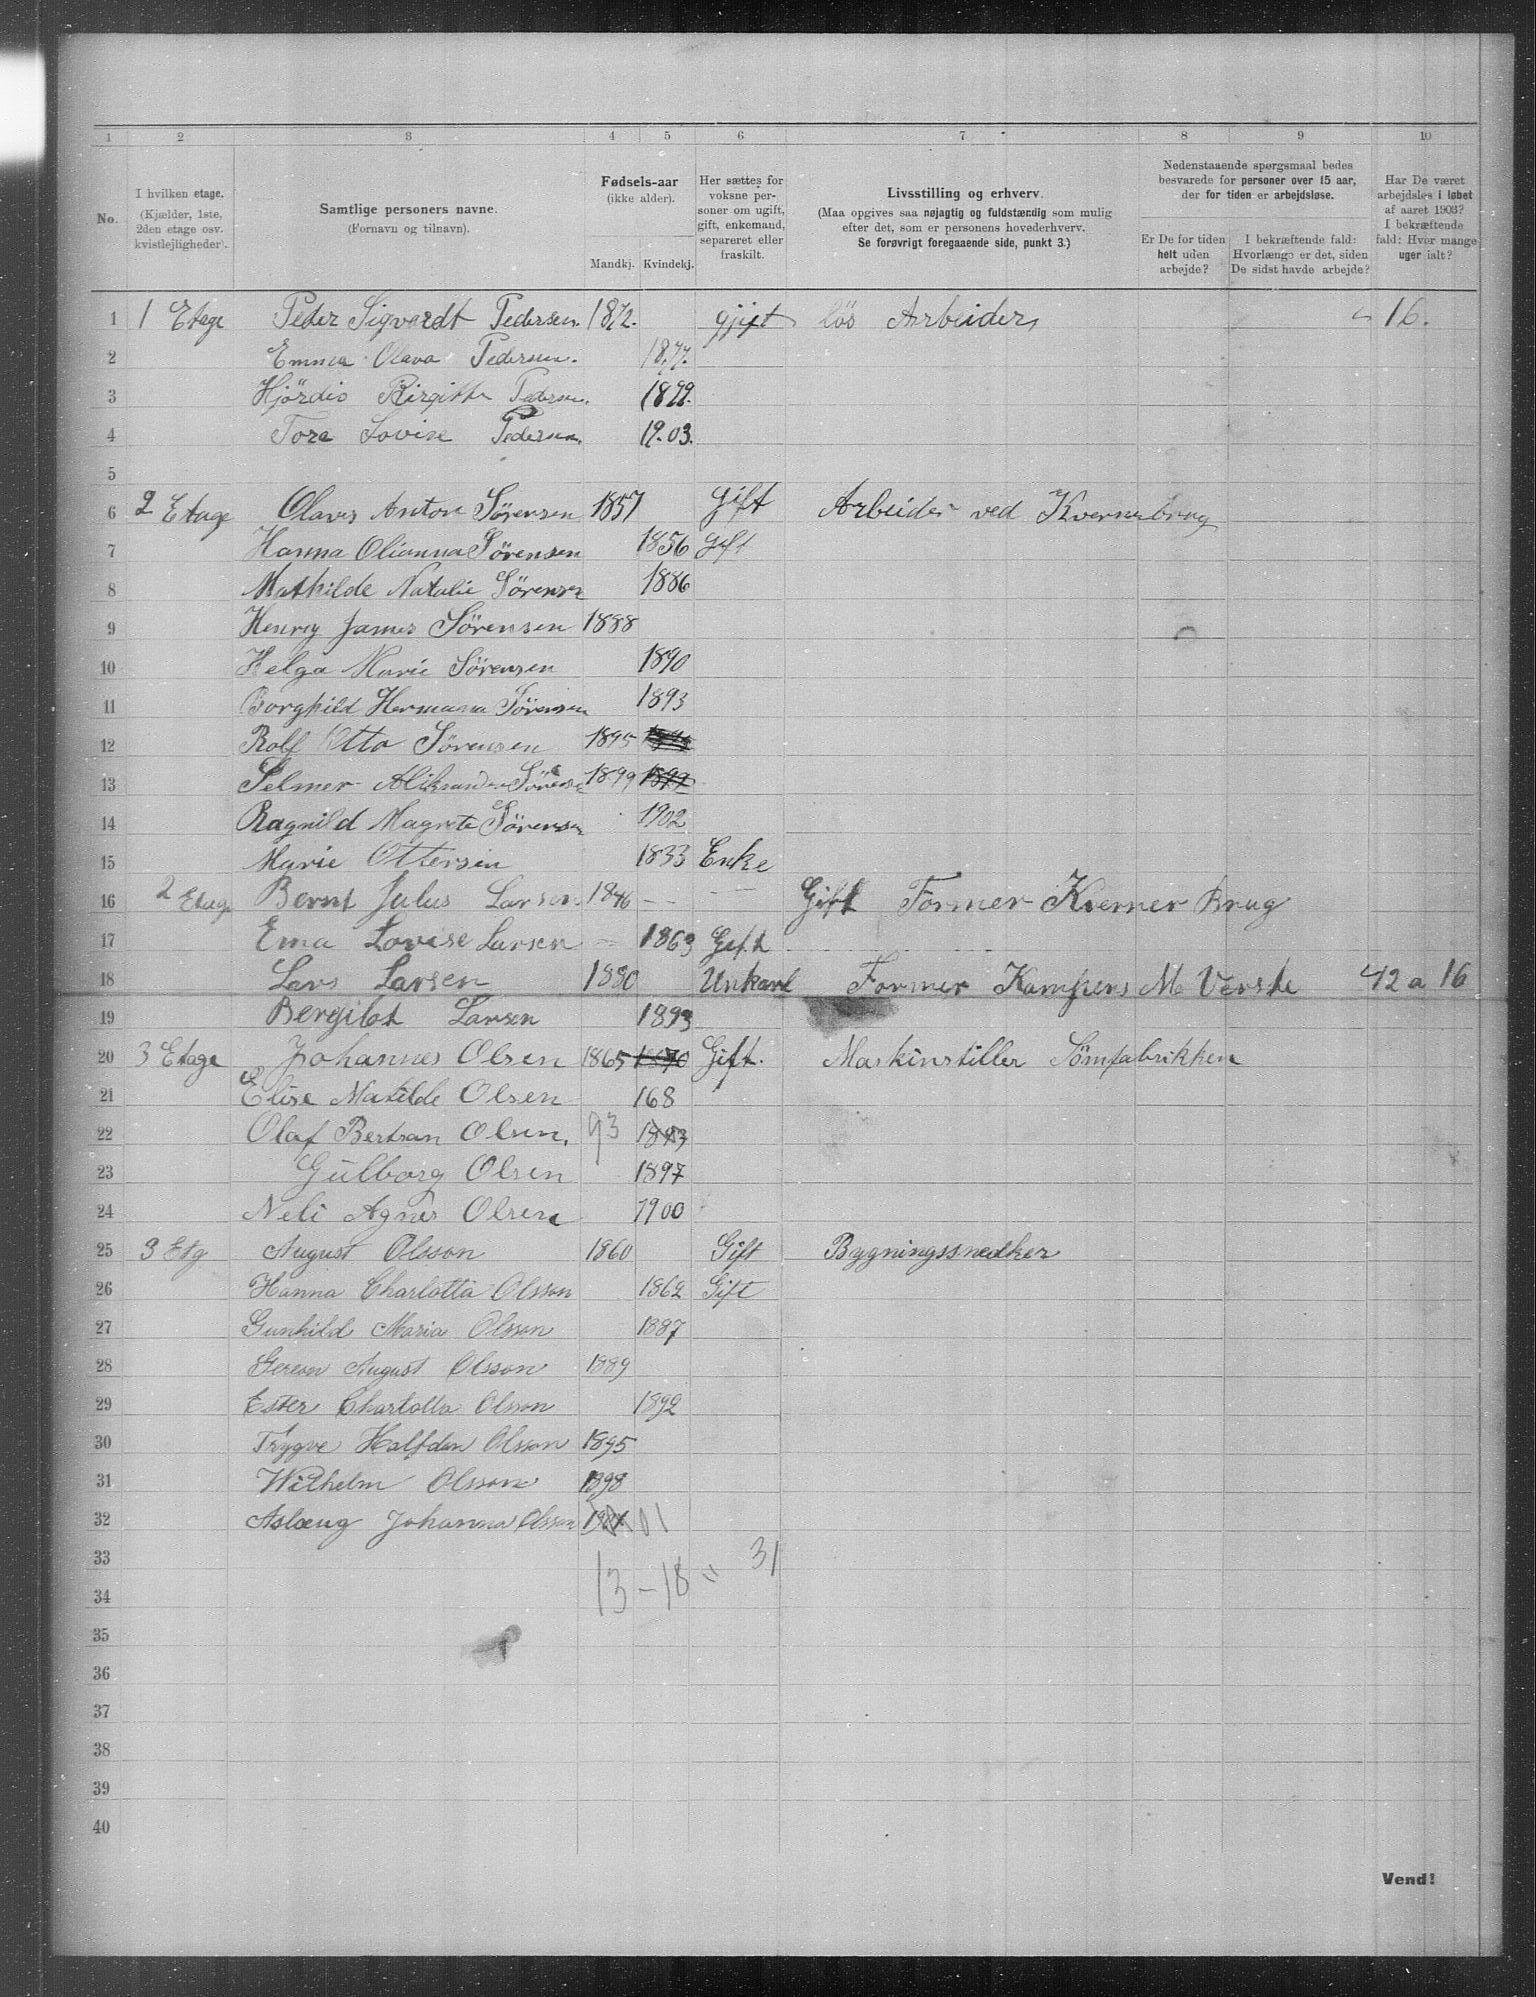 1 2 3 4 5 6 7 8 9 10
No.
I hvilken etage.
(Kjælder, 1ste,
2den etage osv.
kvistlejligheder).
Samtlige personers navne.
(Fornavn og tilnavn).
Fødsels-aar
(ikke alder).
Mandkj. Kvindekj.
Her sættes for
voksne per-
soner om ugift,
gift, enkemand,
separeret eller
fraskilt.
Livsstilling og erhverv.
(Maa opgives saa nøjagtig og fuldstændig som mulig
efter det, som er personens hovederhverv.
Se forøvrigt foregaaende side, punkt 3.)
Nedenstaaende spørgsmaal bedes
besvarede for personer over 15 aar,
der for tiden er arbejdsløse.
Er De for tiden
helt uden
arbejde?
I bekræftende fald:
Hvorlænge er det, siden
De sidst havde arbejde?
Har De været
arbejdsløs i løbet
af aaret 1903?
I bekræftende
fald: Hvor mange
uger ialt?
1 1 Etage Peder Sigvardt Pedersen. 1872. gjift løs Arbeider 16.
2 Emma Olava Pedersen. 1877.
3 Hjördis Birgitte Pedersen. 1899.
4 Tora Lovise Pedersen. 19.03.
5
6 2 Etage Olavs Anton Sörensen 1857 gift Arbeider ved Kvernerbrug
7 Hanna Olianna Sörensen 1856 gift
8 Mathilde Natalie Sörensen 1886
9 Henry James Sörensen 1888
10 Helga Marie Sörensen 1890
11 Borghild Hermana Sörensen 1893
12 Rolf Otto Sörensen 1895
13 Selmer Aliksander Sörensen 1899 1899
14 Ragnild Magrete Sörensen 1902
15 Marie Ottersen 1833 Enke
16 2 Etage Bernt Julus Larsen 1846 — — Gift Former Kverner Brug
17 Ema Lovise Larsen — 1863 Gift
18 Lars Larsen 1880 Unkarl Former Kampens M. Verste 42 a 16
19 Bergilot Larsen 1893
20 3 Etage Johannes Olsen 1865 1870 Gift. Maskinstiller Sömfabrikken
21 Elise Matilde Olsen 168
22 Olaf Bertran Olsen. 93 1893
23 Gulborg Olsen 1897
24 Neli Agnes Olsen 1900
25 3 Etg August Olsson 1860 Gift Bygningssnedker
26 Hanna Charlotta Olsson 1862 Gift
27 Gunhild Maria Olsson 1887
28 August Olsson 1889
29 Ester Charlotta Olsson 1892
30 Trygve Halfdan Olsson 1895
31 Wilhelm Olsson 1898
32 Aslaug Johanna Olsson 01
33
13 - 18 = 31
34
35
36
37
38
39
40
Vend!